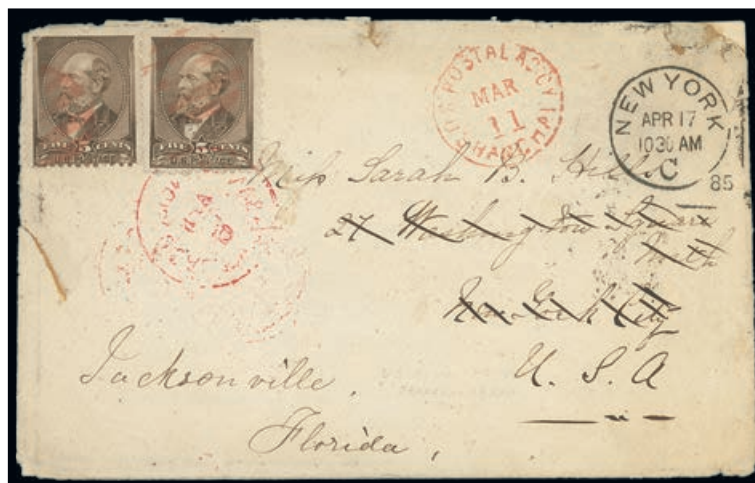 FIVE 5 CENTS
U.S. POSTAGE
FIVE 5 CENTS
U.S. POSTAGE
U.S. POSTAL AGCY
MAR
11
SHANGHAI
NEW YORK
APR 17
1030 AM
C
85
Miss Sarah B.
27 Washington Square
North
New York City
U. S. A
Jacksonville,
Florida,